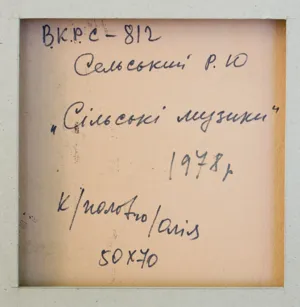 ВКРС-812
Сельський Р. Ю
„Сільські музики"
1978 р
к/полотно/олія
50x70